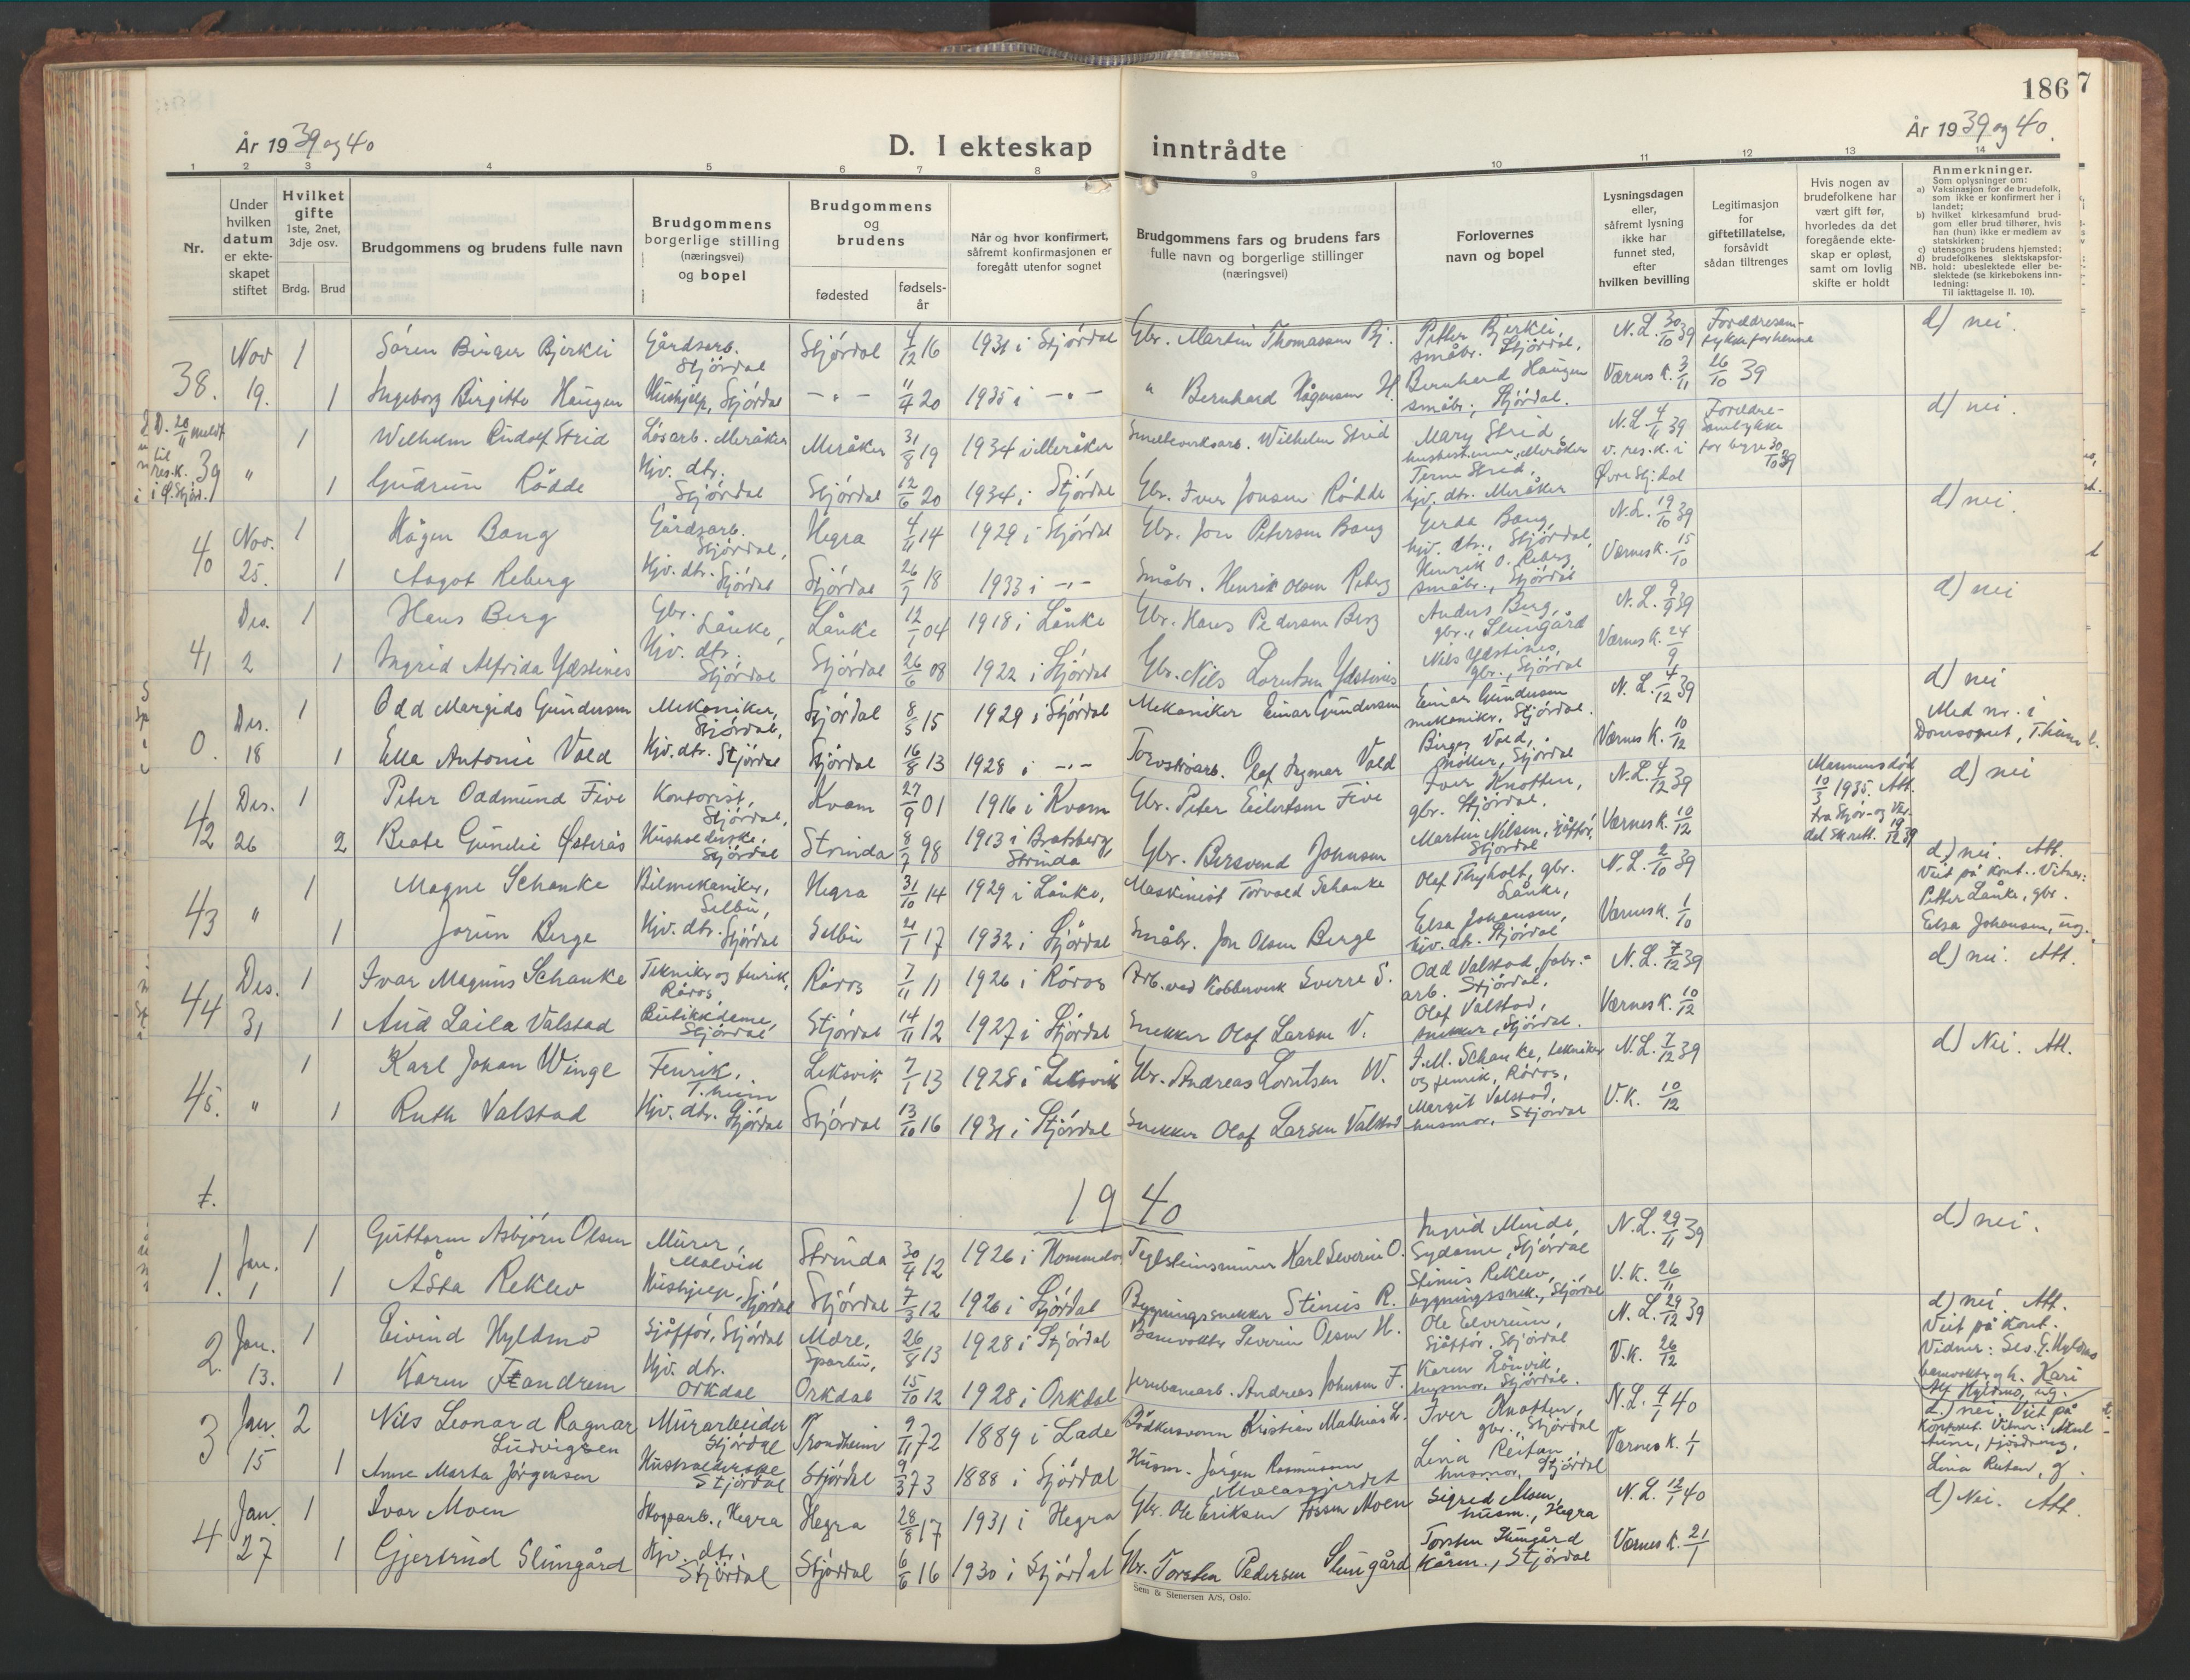 186
7
År 1939 og 40
D. I ekteskap inntrådte
År 1939 og 40.
1 2 3 4 5 6 7 8 9 10 11 12 13 14
Nr.
Under hvilken datum er ekteskapet stiftet
Hvilket gifte
1ste, 2net, 3dje osv.
Brdg. Brud
Brudgommens og brudens fulle navn
Brudgommens borgerlige stilling (næringsvei) og bopel
Brudgommens og brudens
fødested
fødsels-år
Når og hvor konfirmert, såfremt konfirmasjonen er foregått utenfor sognet
Brudgommens fars og brudens fars fulle navn og borgerlige stillinger (næringsvei)
Forlovernes navn og bopel
Lysningsdagen eller, såfremt lysning ikke har funnet sted, efter hvilken bevilling
Legitimasjon for giftetillatelse, forsåvidt sådan tiltrenges
Hvis nogen av brudefolkene har vært gift før, hvorledes da det foregående ekteskap er opløst, samt om lovlig skifte er holdt
Anmerkninger.
Som oplysninger om:
a) Vaksinasjon for de brudefolk, som ikke er konfirmert her i landet;
b) hvilket kirkesamfund brudgom eller brud tilhører, hvis han (hun) ikke er medlem av statskirken;
c) utensogns brudens hjemsted;
d) brudefolkenes slektskapsforhold: ubeslektede eller beslektede (se kirkebokens innledning:
NB.
Til iakttagelse II. 10).
38. Nov 19. 1 Sören Birger Bjerkli Gårdsarb. Stjördal Stjördal 4/12 16 1931 i Stjördal Gbr. Martin Thomassen Bj. Petter Bjerkli, småbr. Stjördal. N.L. 30/10 39 Foreldresamtykke for henne d) nei.
1 Ingeborg Birgitte Haugen Hushjelp, Stjördal - " - 11/4 20 1935 i - " - " Bernhard Hågensen H. Bernhard Haugen småbr., Stjördal. Værnes k. 5/11 26/10 39
D. 20/11 meldt til res.k. i Ø. Stjörd.
39 " 1 Wilhelm Rudolf Strid Løsarb. Meråker Meråker 31/8 19 1934 i Meråker Smelteverksarb. Wilhelm Strid Mary Strid husbest.inne, Meråker N.L. 4/11 39 v. res.k. i Foreldresamtykke for begge 30/10 39 d) nei.
1 Gudrun Rödde Hjv. dtr. Stjördal Stjördal 12/6 20 1934 i Stjördal Gbr. Iver Jonsen Rödde Strid, hjv. dtr. Meråker Øvre Stj.dal
40 Nov. 25. 1 Hågen Bang Gårdsarb. Stjördal, Hegra 4/11 14 1929 i Stjördal Gbr. Jon Petersen Bang Gerda Bang, hjv. dtr., Stjördal N.L. 19/10 39 d) nei.
1 Aagot Reberg Hjv. dtr. Stjördal Stjördal 26/7 18 1933 i - " - Småbr. Henrik Olsen Reberg Henrik O. Reberg, småbr., Stjördal Værnes k. 15/10
41 Des. 2 1 Hans Berg Gbr. Lånke, Lånke 12/1 04 1918 i Lånke Gbr. Hans Pedersen Berg Anders Berg, gbr., Slungård N.L. 9/9 39 d) nei
1 Ingrid Alfrida Ydstines Hjv. dtr. Stjördal Stjördal 26/6 08 1922 i Stjördal Gbr. Nils Lorntsen Ydstines Nils Ydstines, gbr., Stjördal Værnes k. 24/9
0. Des. 18 1 Odd Margido Gundersen Mekaniker, Stjördal, Stjördal 8/5 15 1929 i Stjördal Mekaniker Einar Gundersen Einar Gundersen mekaniker, Stjördal. N.L. 4/12 39 d) nei Med nr. i Domsognet, T.heim
1 Ella Antonie Vold Hjv. dtr. Stjördal Stjördal 16/8 13 1928 i - " - Olaf Ingmar Vold Birger Vold, möller, Stjördal Værnes k. 10/12
42 Des. 26 1 Peter Oddmund Five Kontorist, Stjördal, Kvam 27/9 01 1916 i Kvam Gbr. Peter Eilertsen Five Iver Knotten, gbr. Stjördal. N.L. 4/12 39 Mannens död 10/3 1935. Att. fra Stjør- og Verdal sk.rett. 19/12 39 d) nei
2 Beate Gundie Østerås Husholderske, Stjördal Strinda 8/7 98 1913 i Bratsberg, Strinda Gbr. Bersvend Johnsen Morten Nilsen, sjåffør, Stjördal Værnes k. 10/12
43 " 1 Magne Schanke Bilmekaniker, Selbu, Hegra 31/10 14 1929 i Lånke, Maskinist Torvald Schanke Olaf Thyholt, gbr. Lånke, N.L. 2/10 39 d) nei. Att. Viet på kont. Vitner: Petter Lånke, gbr. Elsa Johansen, ug.
1 Jorun Berge Hjv. dtr. Stjördal Selbu 21/1 17 1932 i Stjördal Småbr. Jon Olsen Berge Elsa Johansen, hjv. dtr. Stjördal Værnes k. 1/10
44 Des. 31 1 Ivar Magnus Schanke Tekniker og fenrik, Röros, Röros 7/11 11 1926 i Röros Arb. ved Kobberverk Sverre S. Odd Valstad, fabr.arb. Stjördal. N.L. 7/12 39 d) nei. Att.
1 Aud Laila Valstad Butikkdame, Stjördal Stjördal 14/11 12 1927 i Stjördal Snekker Olaf Larsen V. Olaf Valstad, snekker, Stjördal. Værnes k. 10/12
45. " 1 Karl Johan Winge Fenrik, T.heim Leksvik 7/1 13 1928 i Leksvik Gbr. Andreas Lorntsen W. I.M. Schanke, tekniker og fenrik, Röros, N.L. 7/12 39 d) Nei. Att.
1 Ruth Valstad Hjv. dtr. Stjördal Stjördal 13/10 16 1931 i Stjördal Snekker Olaf Larsen Valstad Margit Valstad, husmor, Stjördal V.K. 10/12
1940
1. Jan. 1 1 Guttorm Asbjörn Olsen Murer, Malvik Strinda 30/4 12 1926 i Hommelvik Teglsteinsmurer Karl Severin O. Ingrid Minde, Sydame, Stjördal N.L. 29/11 39 d) nei.
1 Åsta Reklev Hushjelp, Stjördal Stjördal 7/3 12 1926 i Stjördal Bygningssnekker Stinius R. Stinius Reklev, bygningssnek., Stjördal V.K. 26/11
2. Jan. 13. 1 Eivind Hyldmo Sjåffør, Stjördal Mære, Sparbu, 26/8 13 1928 i Stjördal Banevokter Severin Olsen H. Ole Elverum, Sjåffør, Stjördal N.L. 29/12 39 d) nei. Att. Viet på kont. Vidner: banevokter og h. Kari
1 Karen Fandrem Hjv. dtr. Orkdal Orkdal 15/10 12 1928 i Orkdal Jernbanearb. Andreas Johnsen F. Karen husmor, Stjördal. V.K. 26/12
3 Jan. 15 2 Nils Leonard Ragnar Ludvigsen Murarbeider Stjördal Trondheim 9/11 72 1889 i Lade Bödkersvenn Kristian Mathias L. Iver Knotten, gbr., Stjördal N.L. 4/1 40 d.) nei. Viet på kontoret. Vitner: Lina Reitan, g.
1 Anne Marta Jörgensen Husholderske Stjördal Stjördal 9/3 73 1888 i Stjördal Husm. Jörgen Rasmussen Lina Reitan, husmor, Stjördal Værnes k. 1/1
4 Jan. 27 1 Ivar Moen Skogsarb., Hegra Hegra 28/8 17 1931 i Hegra Gbr. Ole Eriksen Fossen Moen Sigrid Moen, husm., Hegra N.L. 12/1 40 d) Nei. Att.
1 Gjertrud Slungård Hjv. dtr. Stjördal Stjördal 6/6 16 1930 i Stjördal Gbr. Torsten Pedersen Slungård Torsten Slungård Kårm., Stjördal Værnes k. 21/1
Sem & Stenersen A/S, Oslo.